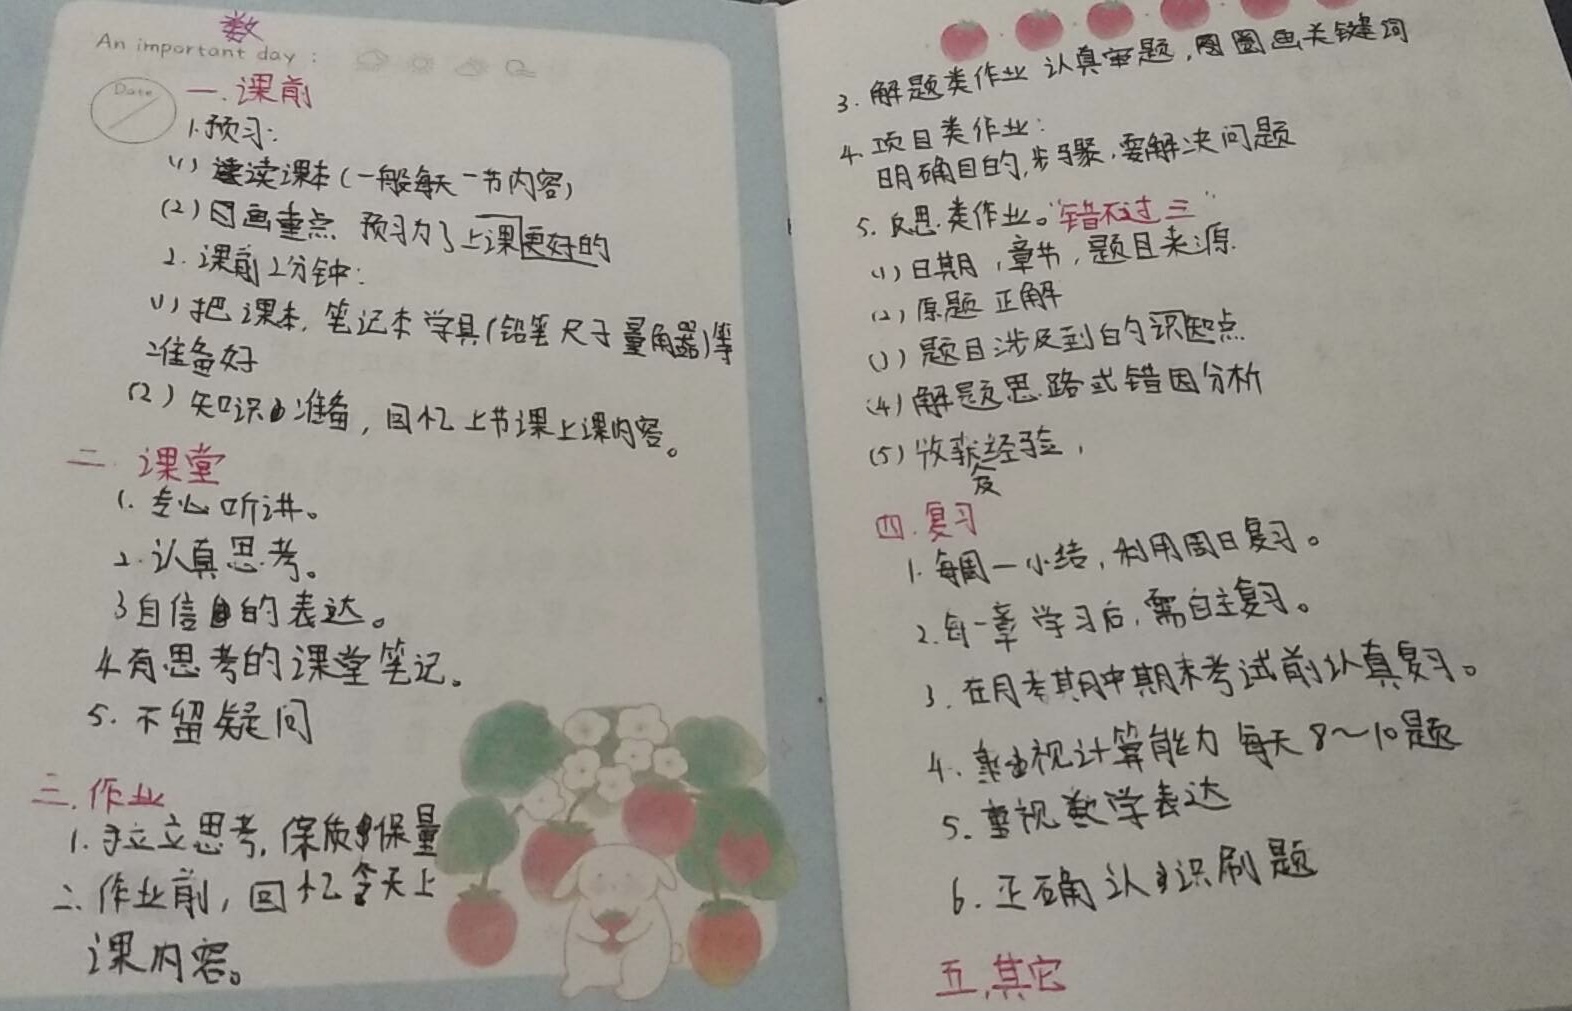 数
An important day :
Date
一.课前
1.预习:
(1) 读课本(一般每天一节内容)
(2) 圈画重点 预习为了上课更好的
2.课前2分钟:
(1) 把课本,笔记本 学具(铅笔 尺子 量角器)等
准备好
(2) 知识准备,回忆上节课上课内容。
二.课堂
1.专心听讲。
2.认真思考。
3自信的表达。
4.有思考的课堂笔记。
5.不留疑问
三.作业
1.独立思考,保质保量
二.作业前,回忆今天上
课内容。
3.解题类作业 认真审题,圈圈画关键词
4.项目类作业:
明确目的,步骤,要解决问题
5.反思类作业。"错不过三"
(1)日期,章节,题目来源
(2)原题 正解
(3)题目涉及到的知识点
(4)解题思路或错因分析
(5)收获经验,
及
四.复习
1.每周一小结,利用周日复习。
2.每一章学习后,需自主复习。
3.在月考期中期末考试前认真复习。
4.重视计算能力 每天8~10题
5.重视数学表达
6.正确认识刷题
五.其它